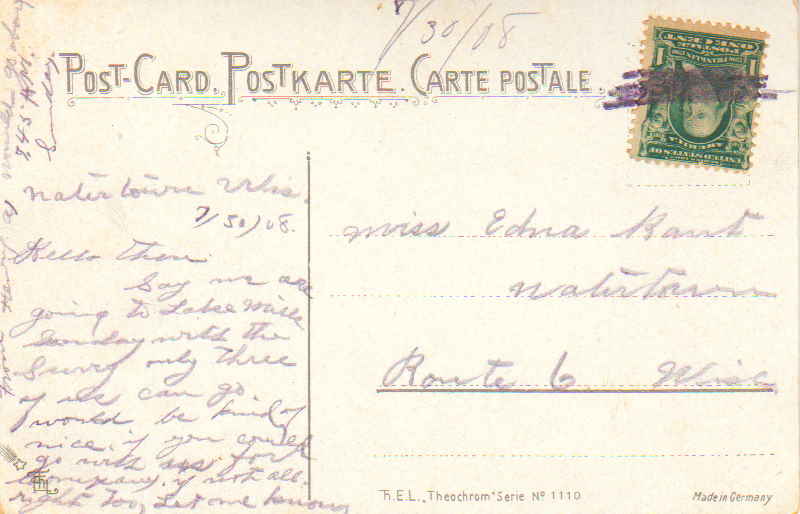 7/30/08
POST-CARD. POSTKARTE. CARTE POSTALE.
UNITED STATES OF AMERICA
Watertown Wis.
7/30/08.
Hello There
Say we are
going to Lake Mills
Sunday with the
Surry only three
of us can go
would be kind of
nice if you could
go with us for
Company, if not all
right too, Let me know
from Henry
would go about
7 45 A.M.
Sunday
Miss Edna Kant
Watertown
Route 6 Wisc.
Th.E.L. „Theochrom" Serie Nº 1110
Made in Germany